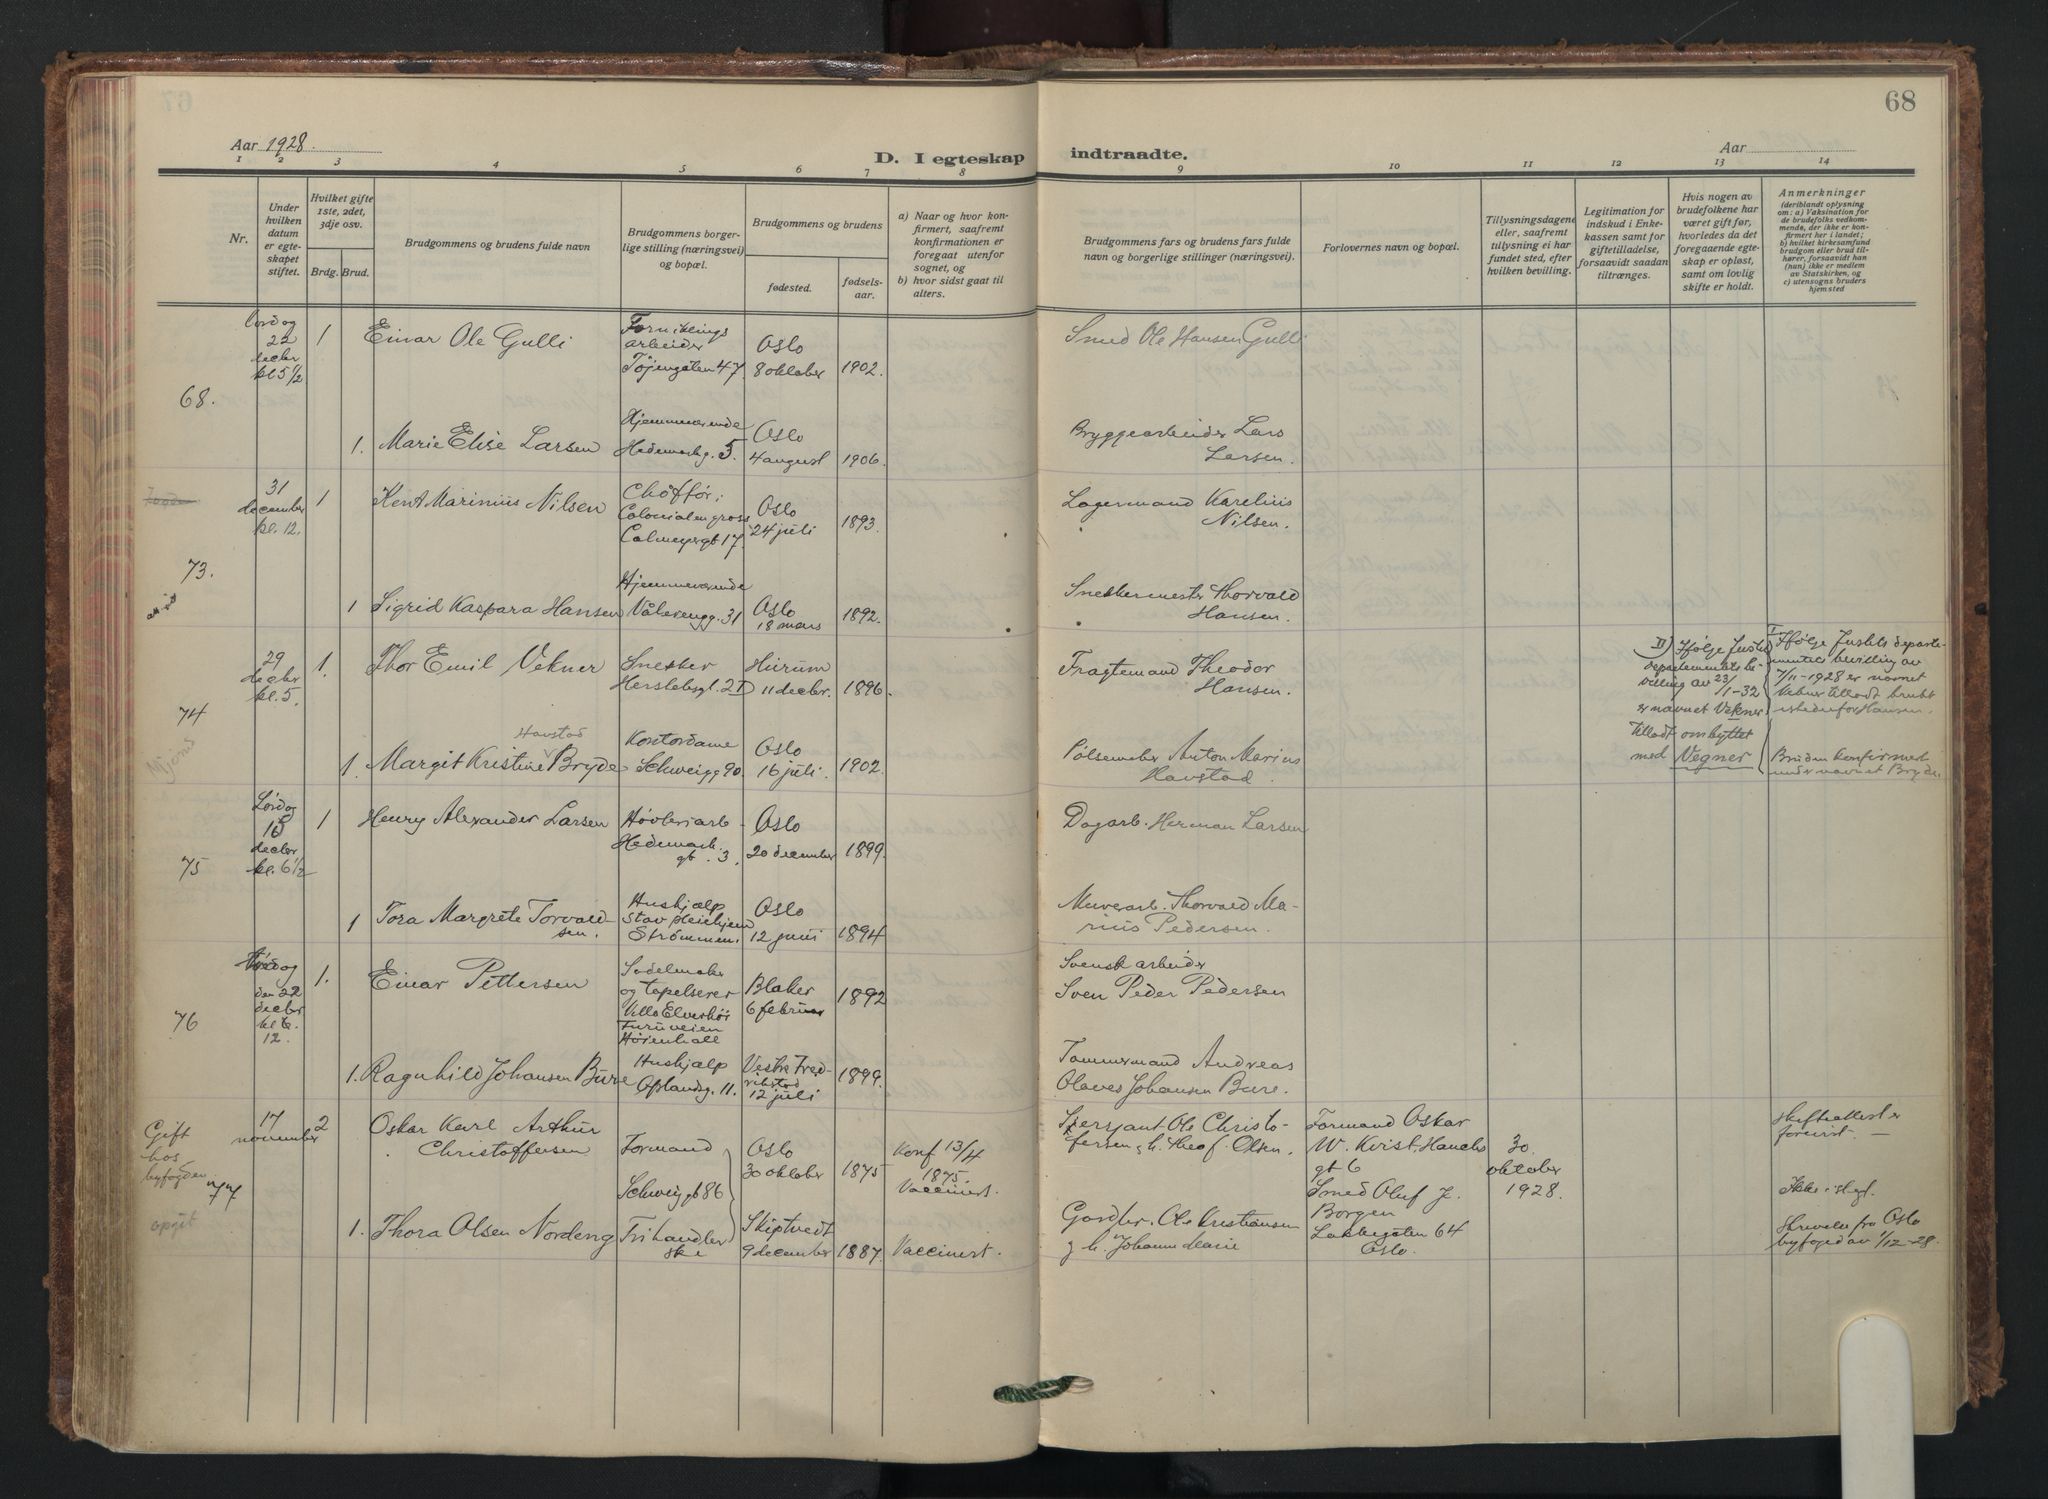 67
68
Aar 1928.
D. I egteskap
indtraadte.
Aar
1 2 3 4 5 6 7 8 9 10 11 12 13 14
Nr.
Under hvilken datum er egteskapet stiftet.
Hvilket gifte 1ste, 2det, 3dje osv.
Brdg. Brud.
Brudgommens og brudens fulde navn
Brudgommens borgerlige stilling (næringsvei) og bopæl.
Brudgommens og brudens
fødested.
fødselsaar.
a) Naar og hvor konfirmert, saafremt konfirmationen er foregaat utenfor sognet, og
b) hvor sidst gaat til alters.
Brudgommens fars og brudens fars fulde navn og borgerlige stillinger (næringsvei).
Forlovernes navn og bopæl.
Tillysningsdagene eller, saafremt tillysning ei har fundet sted, efter hvilken bevilling.
Legitimation for indskud i Enkekassen samt for giftetilladelse, forsaavidt saadan tiltrænges.
Hvis nogen av brudefolkene har været gift før, hvorledes da det foregaaende egteskap er opløst, samt om lovlig skifte er holdt.
Anmerkninger
(deriblandt oplysning om: a) Vaksination for de brudefolks vedkommende, der ikke er konfirmert her i landet; b) hvilket kirkesamfund brudgom eller brud tilhører, forsaavidt han (hun) ikke er medlem av Statskirken, og c) utensogns bruders hjemsted
68.
22 decbr kl 5 1/2
1
Einar Ole Gulli
arbeider
Tøjengaten 47
Oslo
8 oktober
1902.
Smed Ole Hansen Gulli
1.
Marie Elise Larsen
Hjemmeværende
Hedemarkg. 5.
Oslo
4 august
1906.
Bryggearbeider Lars
Larsen.
73.
31
december
kl. 12.
1
Kent Marinius Nilsen
Chøffør i
Colonialengross
Calmeyersgt 17.
Oslo
24 juli
1893.
Lagermand Karelius
Nilsen.
1
Sigrid Kaspara Hansen
Hjemmeværende
Vålerengg. 31
Oslo
18 mars
1892.
Snekkermester Thorvald
Hansen.
74
29
decbr
kl. 5.
1.
Thor Emil Vekner
Snekker
Herslebsgt. 2 I
Hurum
11 decbr.
1896.
Fragtemand Theodor
Hansen.
II) Ifølge Justis
departementets be-
villing av 23/1-32
er navnet Vekner
tilladt ombyttet
med Vegner
I Ifølge Justits departe-
mentets bevilling av
7/11-1928 er navnet
Vekner tilladt brukt
istedenfor Hansen.
1.
Havstad
Margit Kristine Bryde
Kontordame
Schweigg 90.
Oslo
16 juli.
1902.
Pølsemaker Anton Marius
Havstad.
Bruden konfirmert
under navnet Bryde.
75
Lørdag
15
decbr
kl. 6 1/2
1
Henry Alexander Larsen
Høvleriarb
Hedemark.
gt. 3.
Oslo
20 december
1899.
Dagarb. Herman Larsen
1
Tora Margrete Torvald-
sen.
Hushjælp
Strømmen.
Oslo
12 juni
1894
Murerarb. Thorvald Ma-
rius Pedersen.
76
den 22
decbr
kl.
12.
1.
Einar Pettersen
Sadelmaker
og tapetserer
Villa Elverhøi
Furuveien
Høienhall
Blaker
6 februar
1892
Svensk arbeider
Sven Peder Pedersen
1.
Ragnhild Johansen Bure
Hushjælp
Oplandsg. 11.
Vestre Fred-
rikstad
12 juli
1899.
Tømmermand Andreas
Olaves Johansen Bure.
Gift
hos
byfogden
17
november
2
Oskar Karl Arthur
Christoffersen
Formand
Schweiggt 86
Oslo
30 oktober
1875
Konf 13/4
1875.
Vaccinert.
Sersjant Ole Christo-
fersen g. h. Theof Olsen.
Formand Oskar
W. Krist. Hauchs
gt 6
Smed Oluf J.
Borgen
Lakkegaten 64
Oslo.
30
oktober
1928.
Skifteattest er
forevist.
Ikke i slegt.
Skrivelse fra Oslo
byfoged av 1/12-28.
1.
Thora Olsen Nordeng
Frihandler
ske
Skiptvedt
9 december
1887.
Vaccinert.
Gardbr. Ole Kristiansen
g. h. Johanne Marie